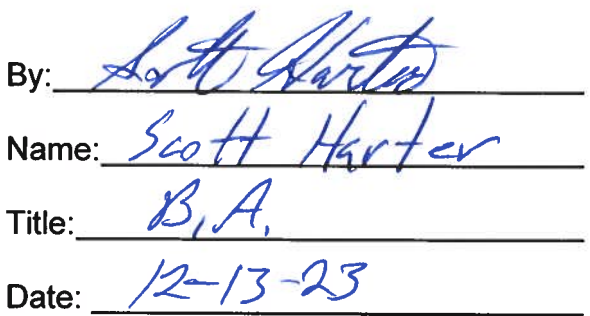 By: Scott Harter
Name: Scott Harter
Title: B.A.
Date: 12-13-23